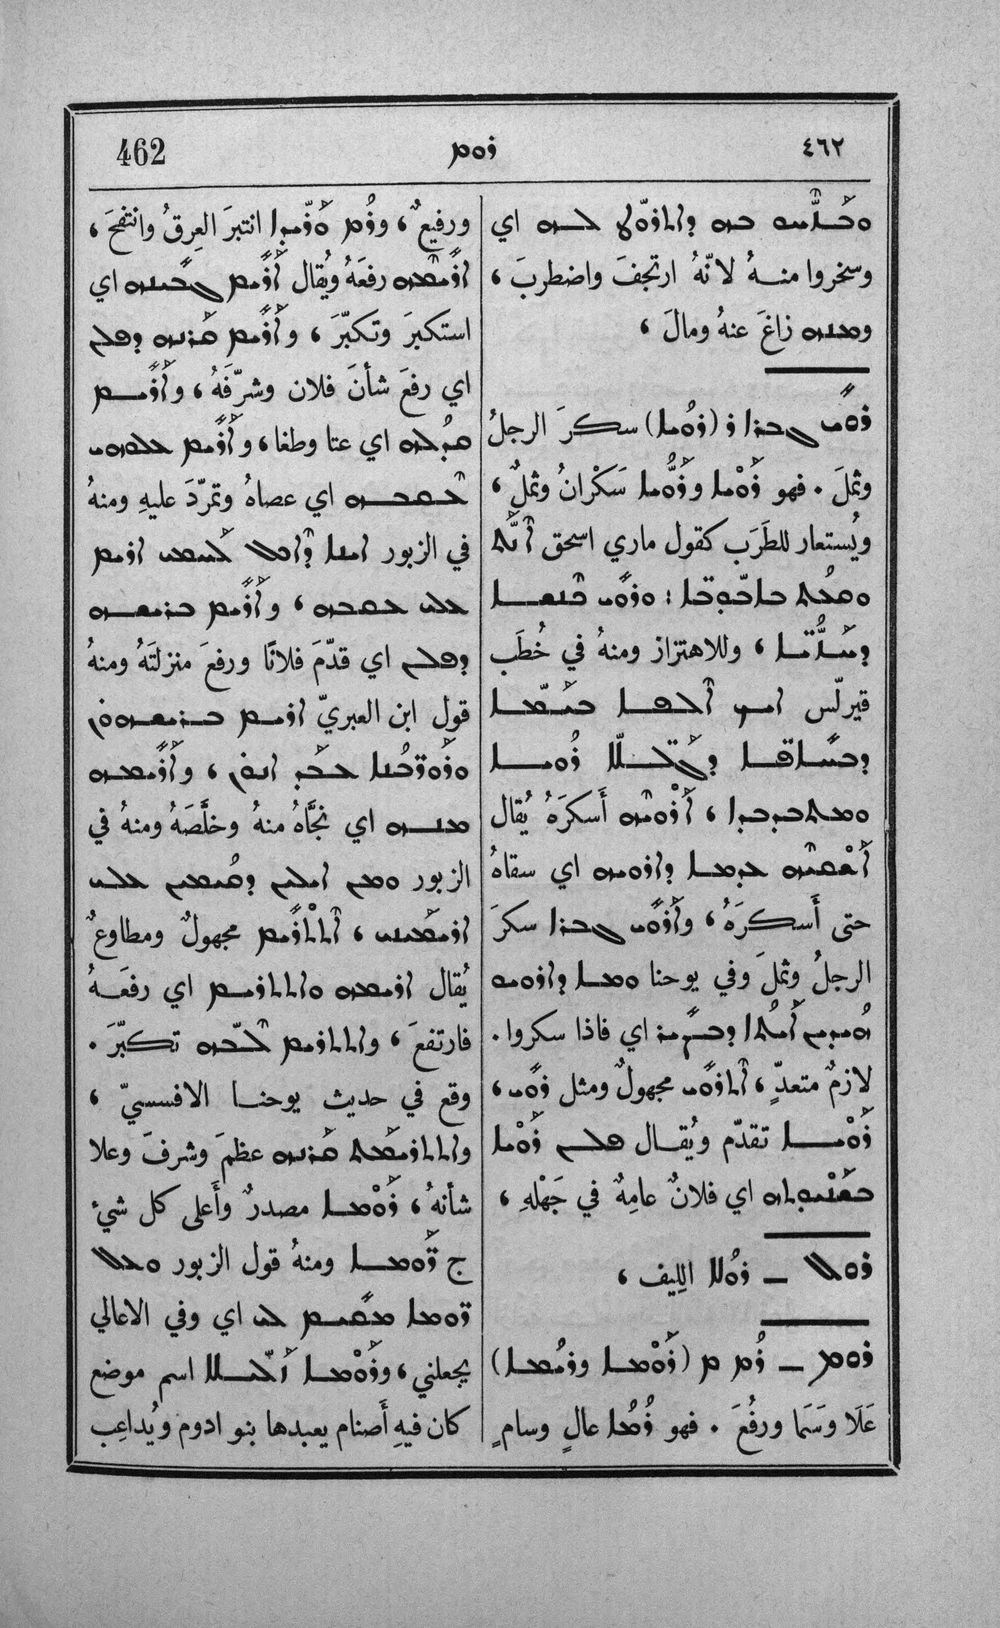 462 ܪܘܡ ٤٦٢
ܒܗ اي
وسخروا منهُ لانّهُ ارتجفَ واضطربَ ،
ܘܡܢܗ زاغَ عنهُ ومالَ ،
ܪܘܝ ܓܒܪܐ ܪ (ܪܘܝܐ) سكرَ الرجلُ
وثملَ . فهو ܪܘܝܐ وܪܘܝܐ سَكْرانُ وثملٌ ،
ويُستعار للطَرَب كقول ماري اسحق
ܘܪܘܝ
وللاهتزاز ومنهُ في خُطَب
قيرلّس ܐܝܟ
ܪܘܝܐ
ܐܪܘܝܗ أَسكرَهُ يُقال
ܕܐܪܘܝܗ اي سقاهُ
حتى أَسكرَهُ ، وܐܪܘܝ ܓܒܪܐ سكرَ
الرجلُ وثملَ وفي يوحنا ܘܡܐ ܕܐܪܘܝܘ
اي فاذا سكروا .
لازمٌ متعدٍّ ، ܐܬܪܘܝ مجهولٌ ومثل ܪܘܝ ،
ܪܘܝܐ تقدّم ويُقال ܦܠܢ ܪܘܝܐ
اي فلانٌ عامِهٌ في جَهْلهِ ،
ܪܘܠ — ܪܘܠܐ اللِيف ،
ܪܘܡ — ܪܡ ܡ (ܪܘܡܐ وܪܝܡܐ)
عَلَا وسَمَا ورفُعَ . فهو ܪܡܐ عالٍ وسامٍ
ورفيعٌ ، وܪܡ ܘܪܝܕܐ انتبرَ العِرقُ وانتفخَ ،
ܐܪܝܡܗ رفعَهُ ويُقال ܐܪܝܡ ܓܒܝܢܗ اي
استكبرَ وتكبّرَ ، وܐܪܝܡ ܩܪܢܗ ܕܦܠܢ
اي رفعَ شأنَ فلان وشرّفَهُ ، وܐܪܝܡ
ܩܕܠܗ اي عتا وطغا ، وܐܪܝܡ ܥܠܘܗܝ
ܥܩܒܗ اي عصاهُ وتمرّدَ عليهِ ومنهُ
في الزبور ܐܝܢܐ ܕܐܟܠ ܠܚܡܝ ܐܪܝܡ
ܥܠܝ ܥܩܒܗ ، وܐܪܝܡ ܒܪܝܫܗ
ܕܦܠܢ اي قدّمَ فلانًا ورفعَ منزلتَهُ ومنهُ
قول ابن العبريّ ܐܪܝܡ ܒܪܝܫܗܘܢ
ܘܪܘܪܒܢܐ ܥܒܕ ܐܢܘܢ ، وܐܪܝܡܗ
ܡܢܗ اي نجَّاهُ منهُ وخلَّصَهُ ومنهُ في
الزبور ܘܡܢ ܐܝܠܝܢ ܕܩܝܡܝܢ ܥܠܝ
ܐܪܝܡܬܢܝ ، ܐܬܬܪܝܡ مجهولٌ ومطاوعٌ
يُقال ܐܪܝܡܗ ܘܐܬܬܪܝܡ اي رفعَهُ
فارتفعَ ، وܐܬܬܪܝܡ ܠܒܗ تكبّرَ .
وقع في حديث يوحنا الافسسيّ ،
وܐܬܬܪܝܡܬ ܩܪܢܗ عظمَ وشرفَ وعلا
شأنهُ ، ܪܘܡܐ مصدرٌ وأَعلى كل شيءٍ
ج ܪ̈ܘܡܐ ومنهُ قول الزبور ܘܥܠ
ܪ̈ܘܡܐ ܡܩܝܡ ܠܝ اي وفي الاعالي
يجعلني ، وܪܘܡܐ اسم موضع
كان فيهِ أَصنام يعبدها بنو ادوم ويُداعِب